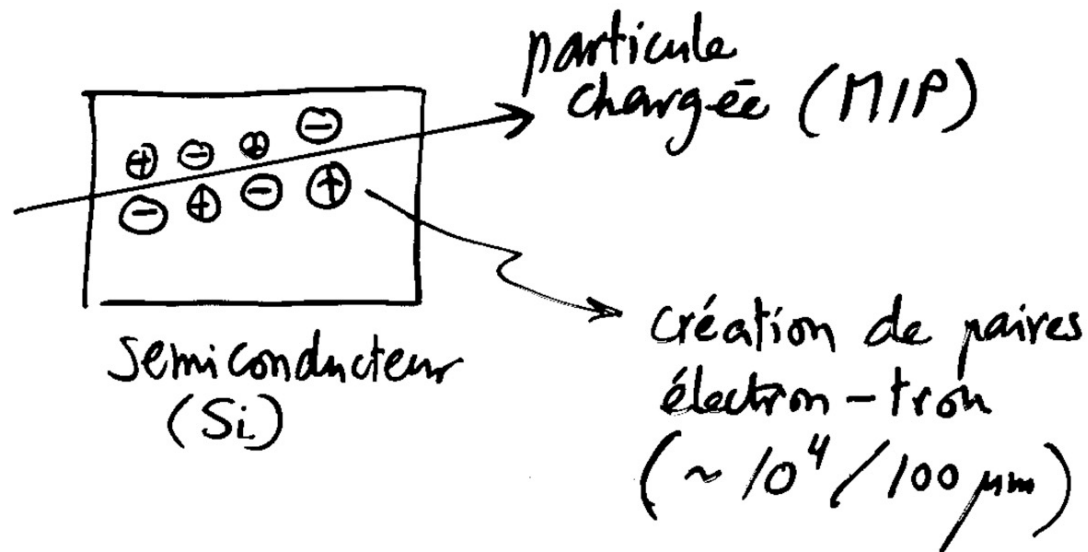 particule
chargée (MIP)
⊕ ⊖ ⊕ ⊖
⊖ ⊕ ⊖ ⊕
semiconducteur
(Si)
création de paires
électron-trou
(~10⁴/100 μm)